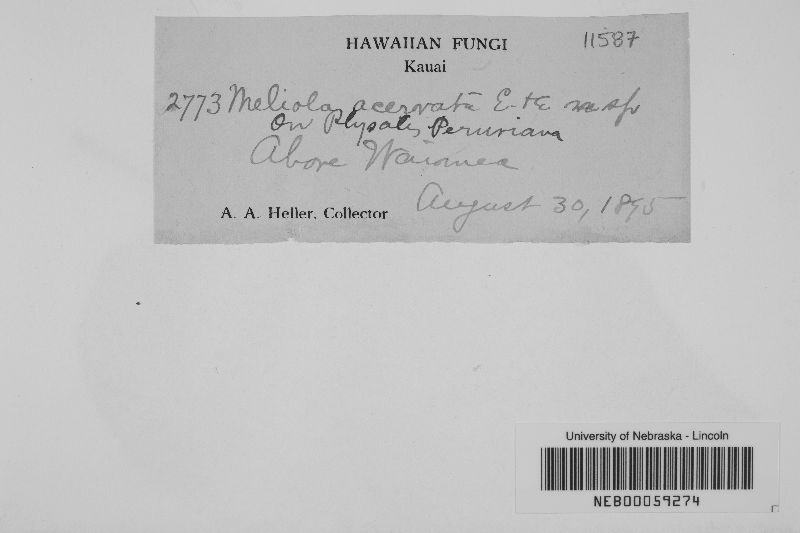 HAWAIIAN FUNGI 11587
Kauai
2773 Meliola acervata E. & E. n. sp
On Physalis Peruviana
Above Waimea
A. A. Heller, Collector August 30, 1895
University of Nebraska - Lincoln
NEB00059274